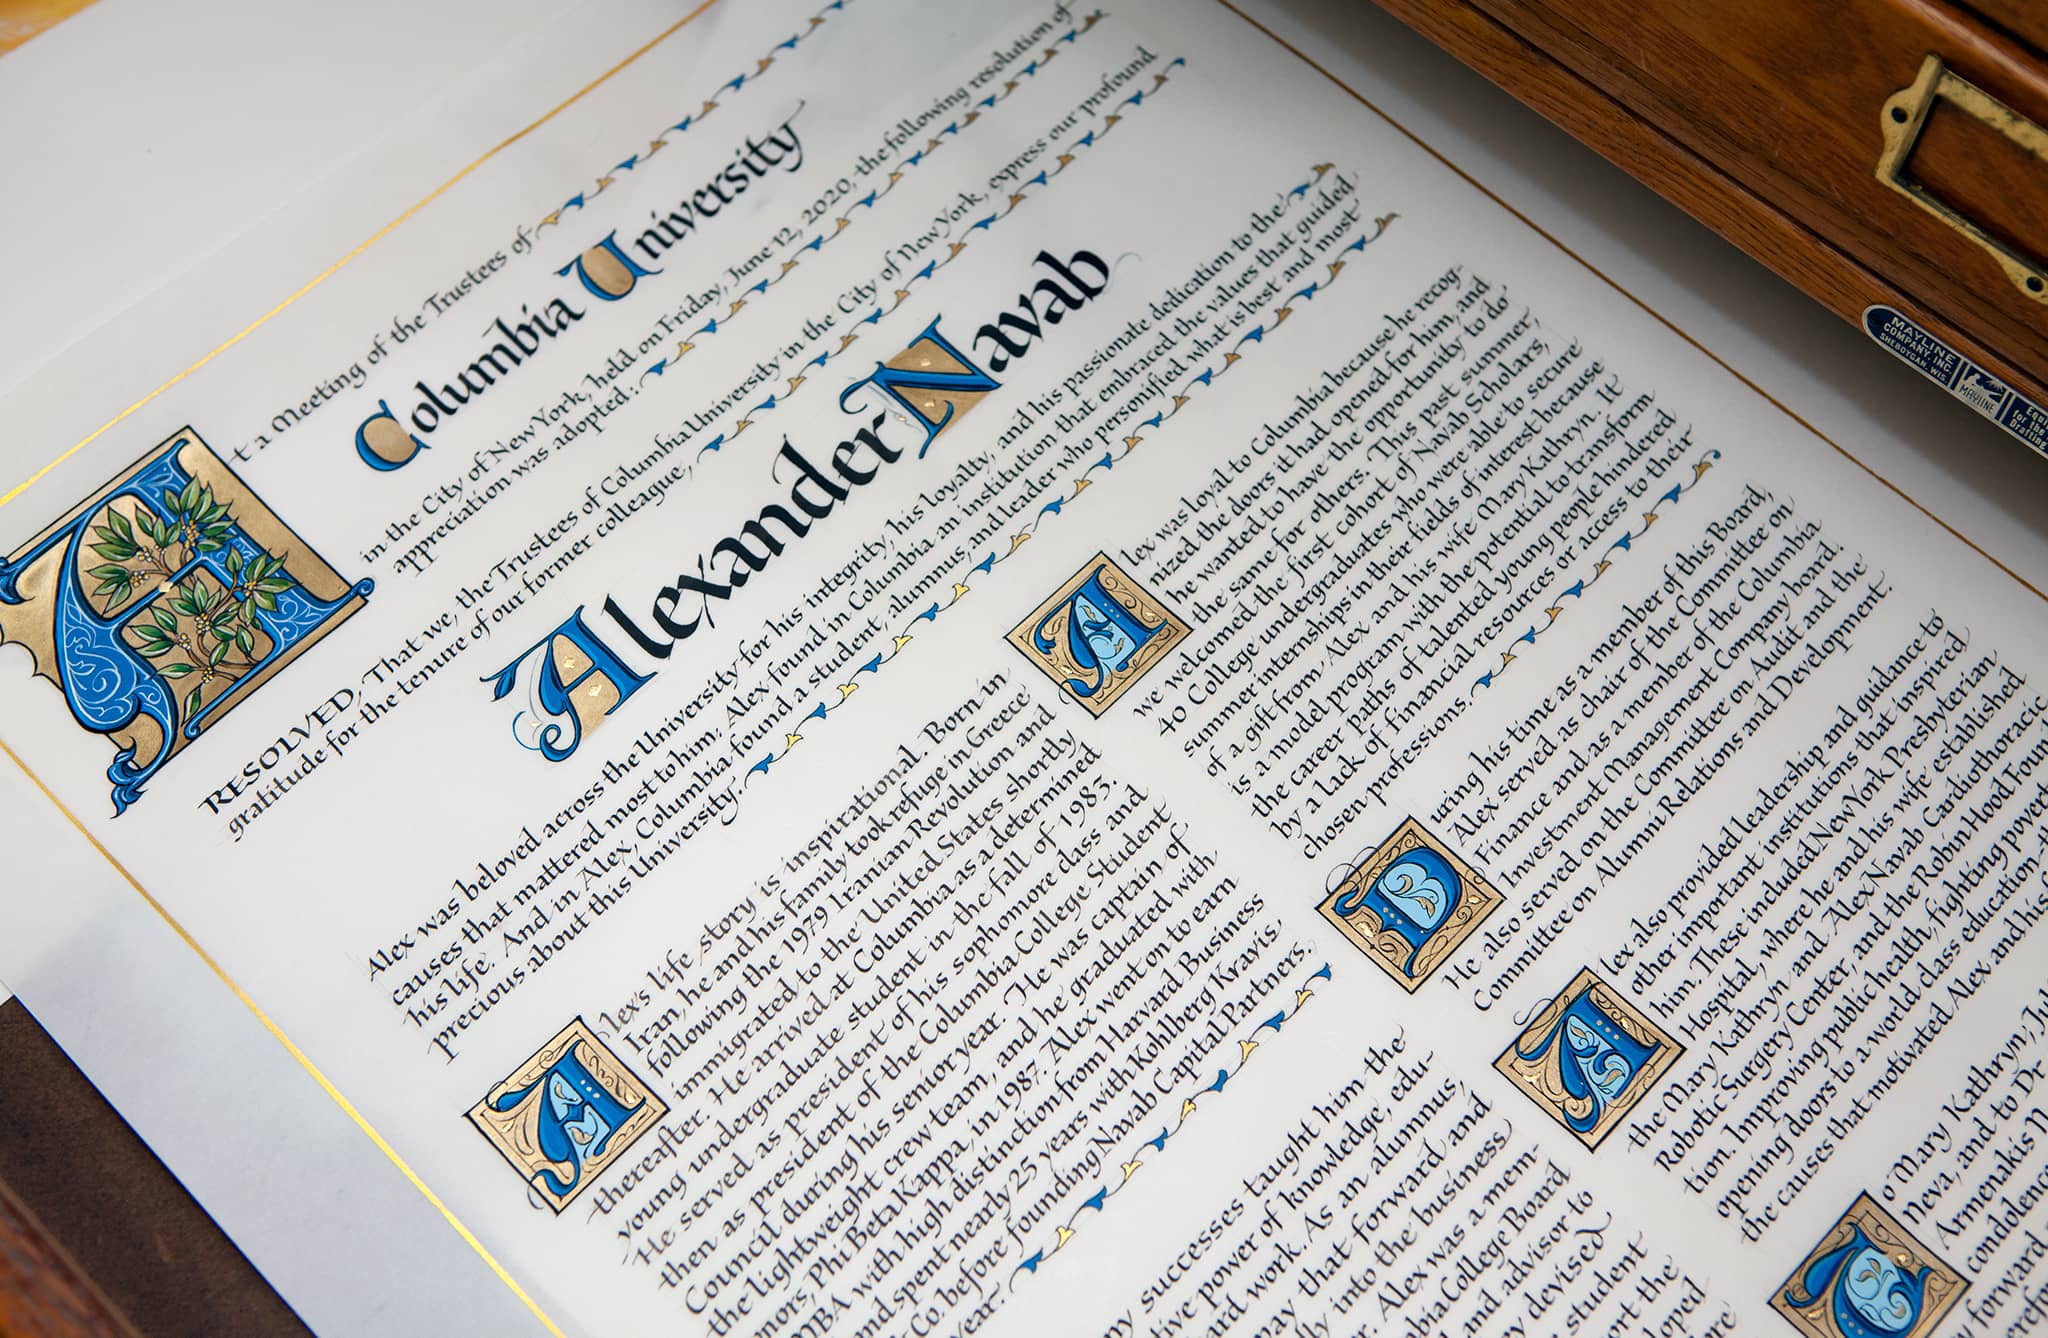 At a Meeting of the Trustees of
Columbia University
in the City of New York, held on Friday, June 12, 2020, the following resolution of
appreciation was adopted:
RESOLVED, That we, the Trustees of Columbia University in the City of New York, express our profound
gratitude for the tenure of our former colleague,
Alexander Navab
Alex was beloved across the University for his integrity, his loyalty, and his passionate dedication to the
causes that mattered most to him. Alex found in Columbia an institution that embraced the values that guided
his life. And in Alex, Columbia found a student, alumnus, and leader who personified what is best and most
precious about this University.
Alex's life story is inspirational. Born in
Iran, he and his family took refuge in Greece
following the 1979 Iranian Revolution and
immigrated to the United States shortly
thereafter. He arrived at Columbia as a determined
young undergraduate student in the fall of 1983.
He served as president of his sophomore class and
then as president of the Columbia College Student
Council during his senior year. He was captain of
the lightweight crew team, and he graduated with
onors Phi Beta Kappa, in 1987. Alex went on to earn
MBA with high distinction from Harvard Business
and spent nearly 25 years with Kohlberg Kravis
Co. before founding Navab Capital Partners.
year.
y successes taught him the
tive power of knowledge, edu-
ard work. As an alumnus,
may that forward and
lly into the business
r. Alex was a mem-
bia College Board
and advisor to
y devised
student
ort the
loped
Alex was loyal to Columbia because he recog-
nized the doors it had opened for him, and
he wanted to have the opportunity to do
the same for others. This past summer,
we welcomed the first cohort of Navab Scholars,
40 College undergraduates who were able to secure
summer internships in their fields of interest because
of a gift from Alex and his wife Mary Kathryn. It
is a model program with the potential to transform
the career paths of talented young people hindered
by a lack of financial resources or access to their
chosen professions.
During his time as a member of this Board,
Alex served as chair of the Committee on
Finance and as a member of the Columbia
Investment Management Company board.
He also served on the Committee on Audit and the
Committee on Alumni Relations and Development.
Alex also provided leadership and guidance to
other important institutions that inspired
him. These included New York Presbyterian
Hospital, where he and his wife established
the Mary Kathryn and Alex Navab Cardiothoracic
Robotic Surgery Center, and the Robin Hood Foun
tion. Improving public health, fighting pover
opening doors to a world class education
the causes that motivated Alex and his
To Mary Kathryn, Ju
Neva, and to Dr
Armenakis N
condolenc
forward
MAYLINE
COMPANY, INC.
SHEBOYGAN, WIS.
MAYLINE
Equ
for the
Drafting